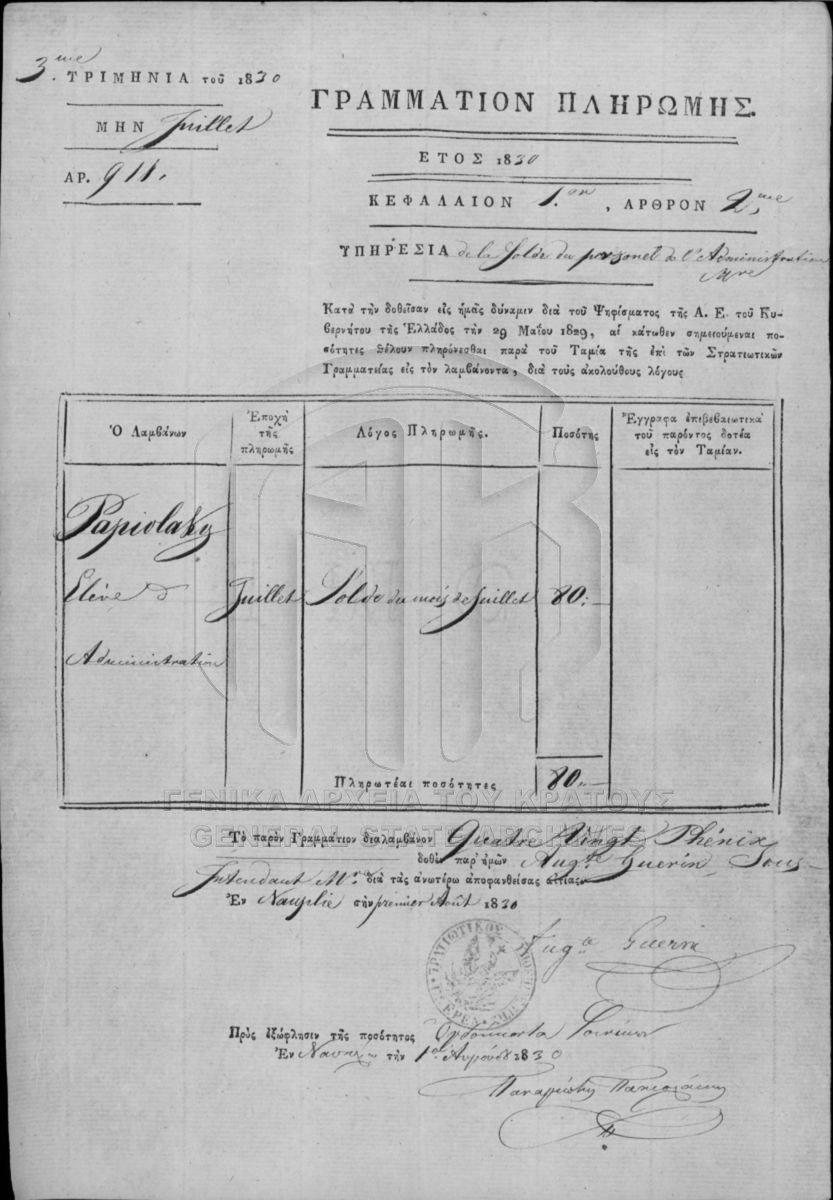 3me ΤΡΙΜΗΝΙΑ τοῦ 1830
ΜΗΝ Juillet
ΑΡ. 911.
ΓΡΑΜΜΑΤΙΟΝ ΠΛΗΡΩΜΗΣ.
ΕΤΟΣ 1830
ΚΕΦΑΛΑΙΟΝ 1.er, ΑΡΘΡΟΝ 2me
ΥΠΗΡΕΣΙΑ de la Solde du personel de l'Administration
Mre
Κατὰ τὴν δοθεῖσαν εἰς ἡμᾶς δύναμιν διὰ τοῦ Ψηφίσματος τῆς Α. Ε. τοῦ Κυ-
βερνήτου τῆς Ἑλλάδος τὴν 29 Μαΐου 1829, αἱ κάτωθεν σημειούμεναι πο-
σότητες θέλουν πληρόνεσθαι παρὰ τοῦ Ταμία τῆς ἐπὶ τῶν Στρατιωτικῶν
Γραμματείας εἰς τὸν λαμβάνοντα, διὰ τοὺς ἀκολούθους λόγους
Ὁ Λαμβάνων
Ἐποχὴ
τῆς
πληρωμῆς
Λόγος Πληρωμῆς.
Ποσότης
Ἔγγραφα ἐπιβεβαιωτικὰ
τοῦ παρόντος δοτέα
εἰς τὸν Ταμίαν.
Papiolaky
Elève d'
Administration
Juillet
Solde du mois de Juillet
80:—
Πληρωτέαι ποσότητες
80:—
ΓΕΝΙΚΑ ΑΡΧΕΙΑ ΤΟΥ ΚΡΑΤΟΥΣ
GENERAL STATE ARCHIVES
Τὸ παρὸν Γραμμάτιον διαλαμβάνον Quatre Vingt Phénix
δοθὲν παρ' ἡμῶν Augte Guérin, Sous-
Intendant Mre διὰ τὰς ἀνωτέρω ἀποφανθείσας αἰτίας
Ἐν Nauplie τὴν premier Août 1830
Augte Guerin
Πρὸς ἐξώφλησιν τῆς ποσότητος Ὀγδοήκοντα Φοινίκων
Ἐν Ναυπλ. τὴν 1ην Αυγούστ 1830
Παναγιώτης Παπιολάκης